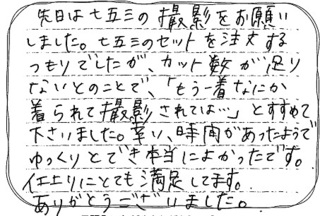 先日は七五三の撮影をお願い
しました。七五三のセットを注文する
つもりでしたが、カット数が足り
ないとのことで、「もう一着なにか
着られて撮影されては…」とすすめて
下さいました。幸い、時間があったようで
ゆっくりとでき本当によかったです。
仕上りにとても満足してます。
ありがとうございました。